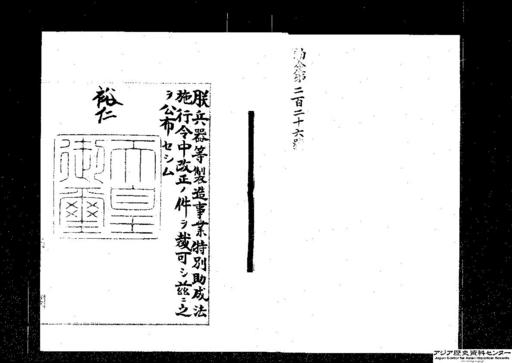 勅令第二百二十六號
朕兵器等製造事業特別助成法
施行令中改正ノ件ヲ裁可シ茲ニ之
ヲ公布セシム
裕仁
天皇
御璽
アジア歴史資料センター
Japan Center for Asian Historical Records